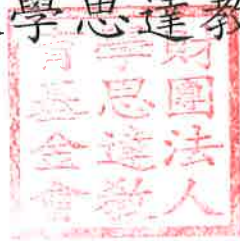 學思達教
財團法人
學思達教
育基金會